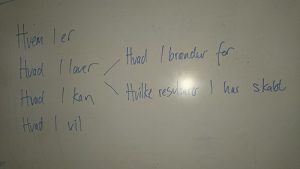 Hvem I er
Hvad I laver
Hvad I kan
Hvad I vil
Hvad I brænder for
Hvilke resultater I har skabt